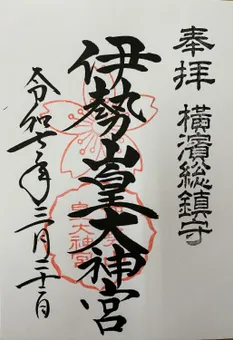 奉拝 横濱総鎮守
伊勢山皇大神宮
令和七年三月二十二日
皇大神宮